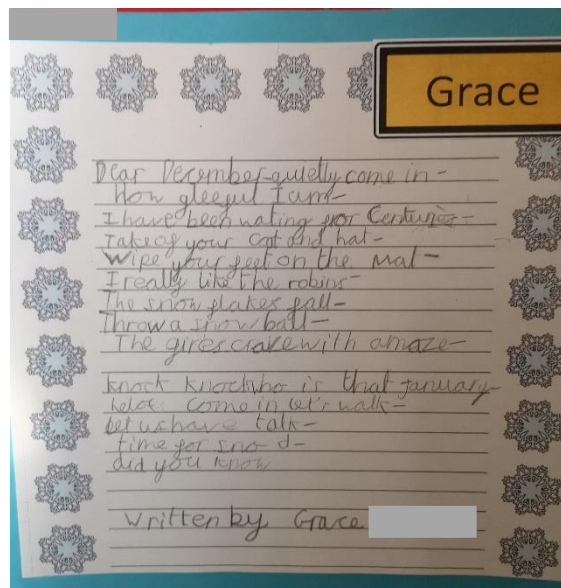 Grace
Dear December quietly come in-
How gleeful I am-
I have been wating for Centuries-
Take of your Coat and hat-
Wipe your feet on the Mat-
I really like the robins-
The snow flakes fall-
Throw a snow ball-
The fires crake with amaze-
knock knock who is that January-
Come in let's walk-
let us have talk-
time for
did you know
Written by Grace